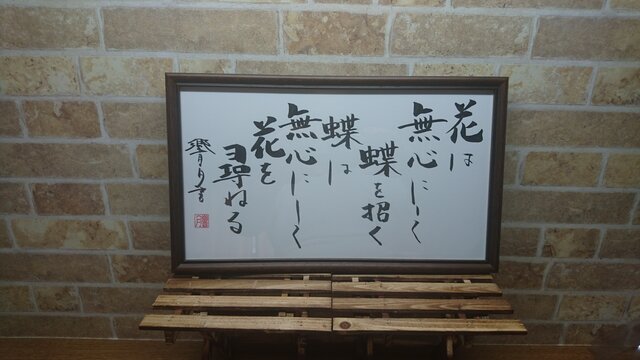 花は
無心にして
蝶を招く
蝶は
無心にして
花を
尋ねる